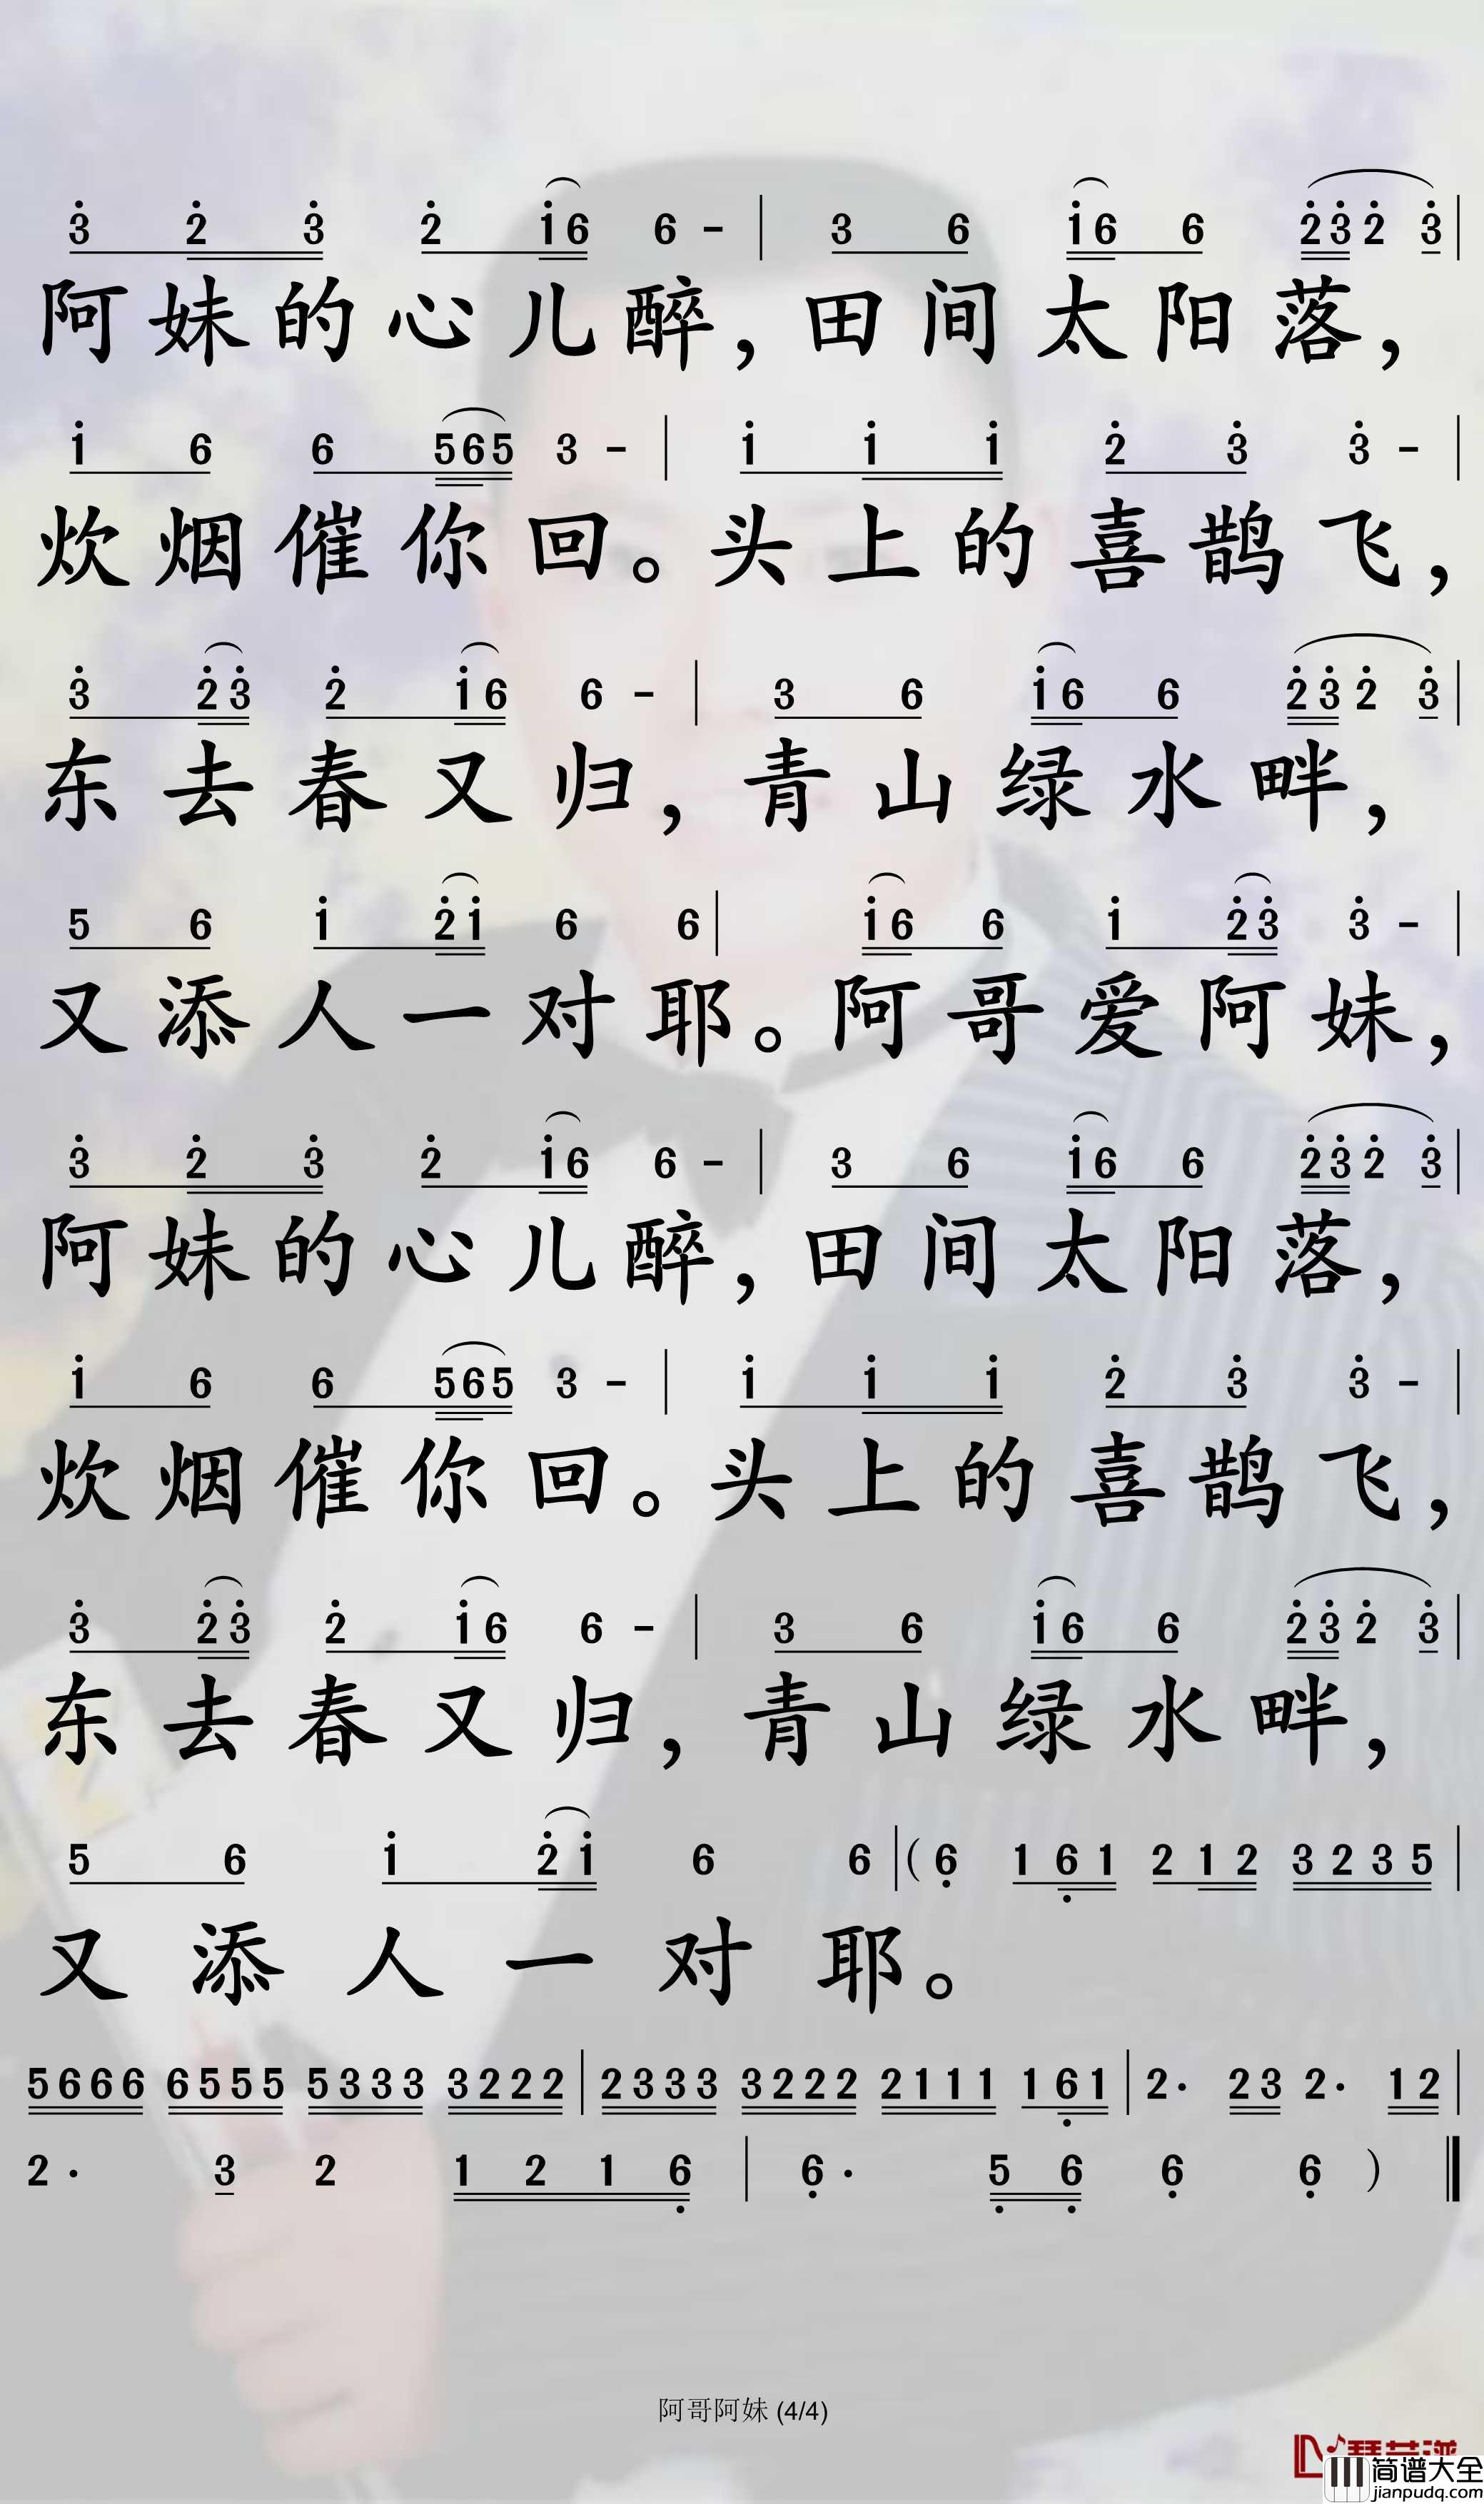 3̇ 2̇ 3̇ 2̇ 1̇6 6 - | 3 6 1̇6 6 2̇3̇2̇ 3̇ |
阿妹的心儿醉，田间太阳落，
1̇ 6 6 565 3 - | 1̇ 1̇ 1̇ 2̇ 3̇ 3̇ - |
炊烟催你回。头上的喜鹊飞，
3̇ 2̇3̇ 2̇ 1̇6 6 - | 3 6 1̇6 6 2̇3̇2̇ 3̇ |
东去春又归，青山绿水畔，
5 6 1̇ 2̇1̇ 6 6 | 1̇6 6 1̇ 2̇3̇ 3̇ - |
又添人一对耶。阿哥爱阿妹，
3̇ 2̇ 3̇ 2̇ 1̇6 6 - | 3 6 1̇6 6 2̇3̇2̇ 3̇ |
阿妹的心儿醉，田间太阳落，
1̇ 6 6 565 3 - | 1̇ 1̇ 1̇ 2̇ 3̇ 3̇ - |
炊烟催你回。头上的喜鹊飞，
3̇ 2̇3̇ 2̇ 1̇6 6 - | 3 6 1̇6 6 2̇3̇2̇ 3̇ |
东去春又归，青山绿水畔，
5 6 1̇ 2̇1̇ 6 6 | (6̣ 16̣1 212 3235 |
又添人一对耶。
5666 6555 5333 3222 | 2333 3222 2111 16̣1 | 2· 23 2· 12 |
2· 3 2 1216̣ | 6̣· 5̣6̣ 6̣ 6̣ ) ‖
阿哥阿妹 (4/4)
简谱大全
jianpudq.com